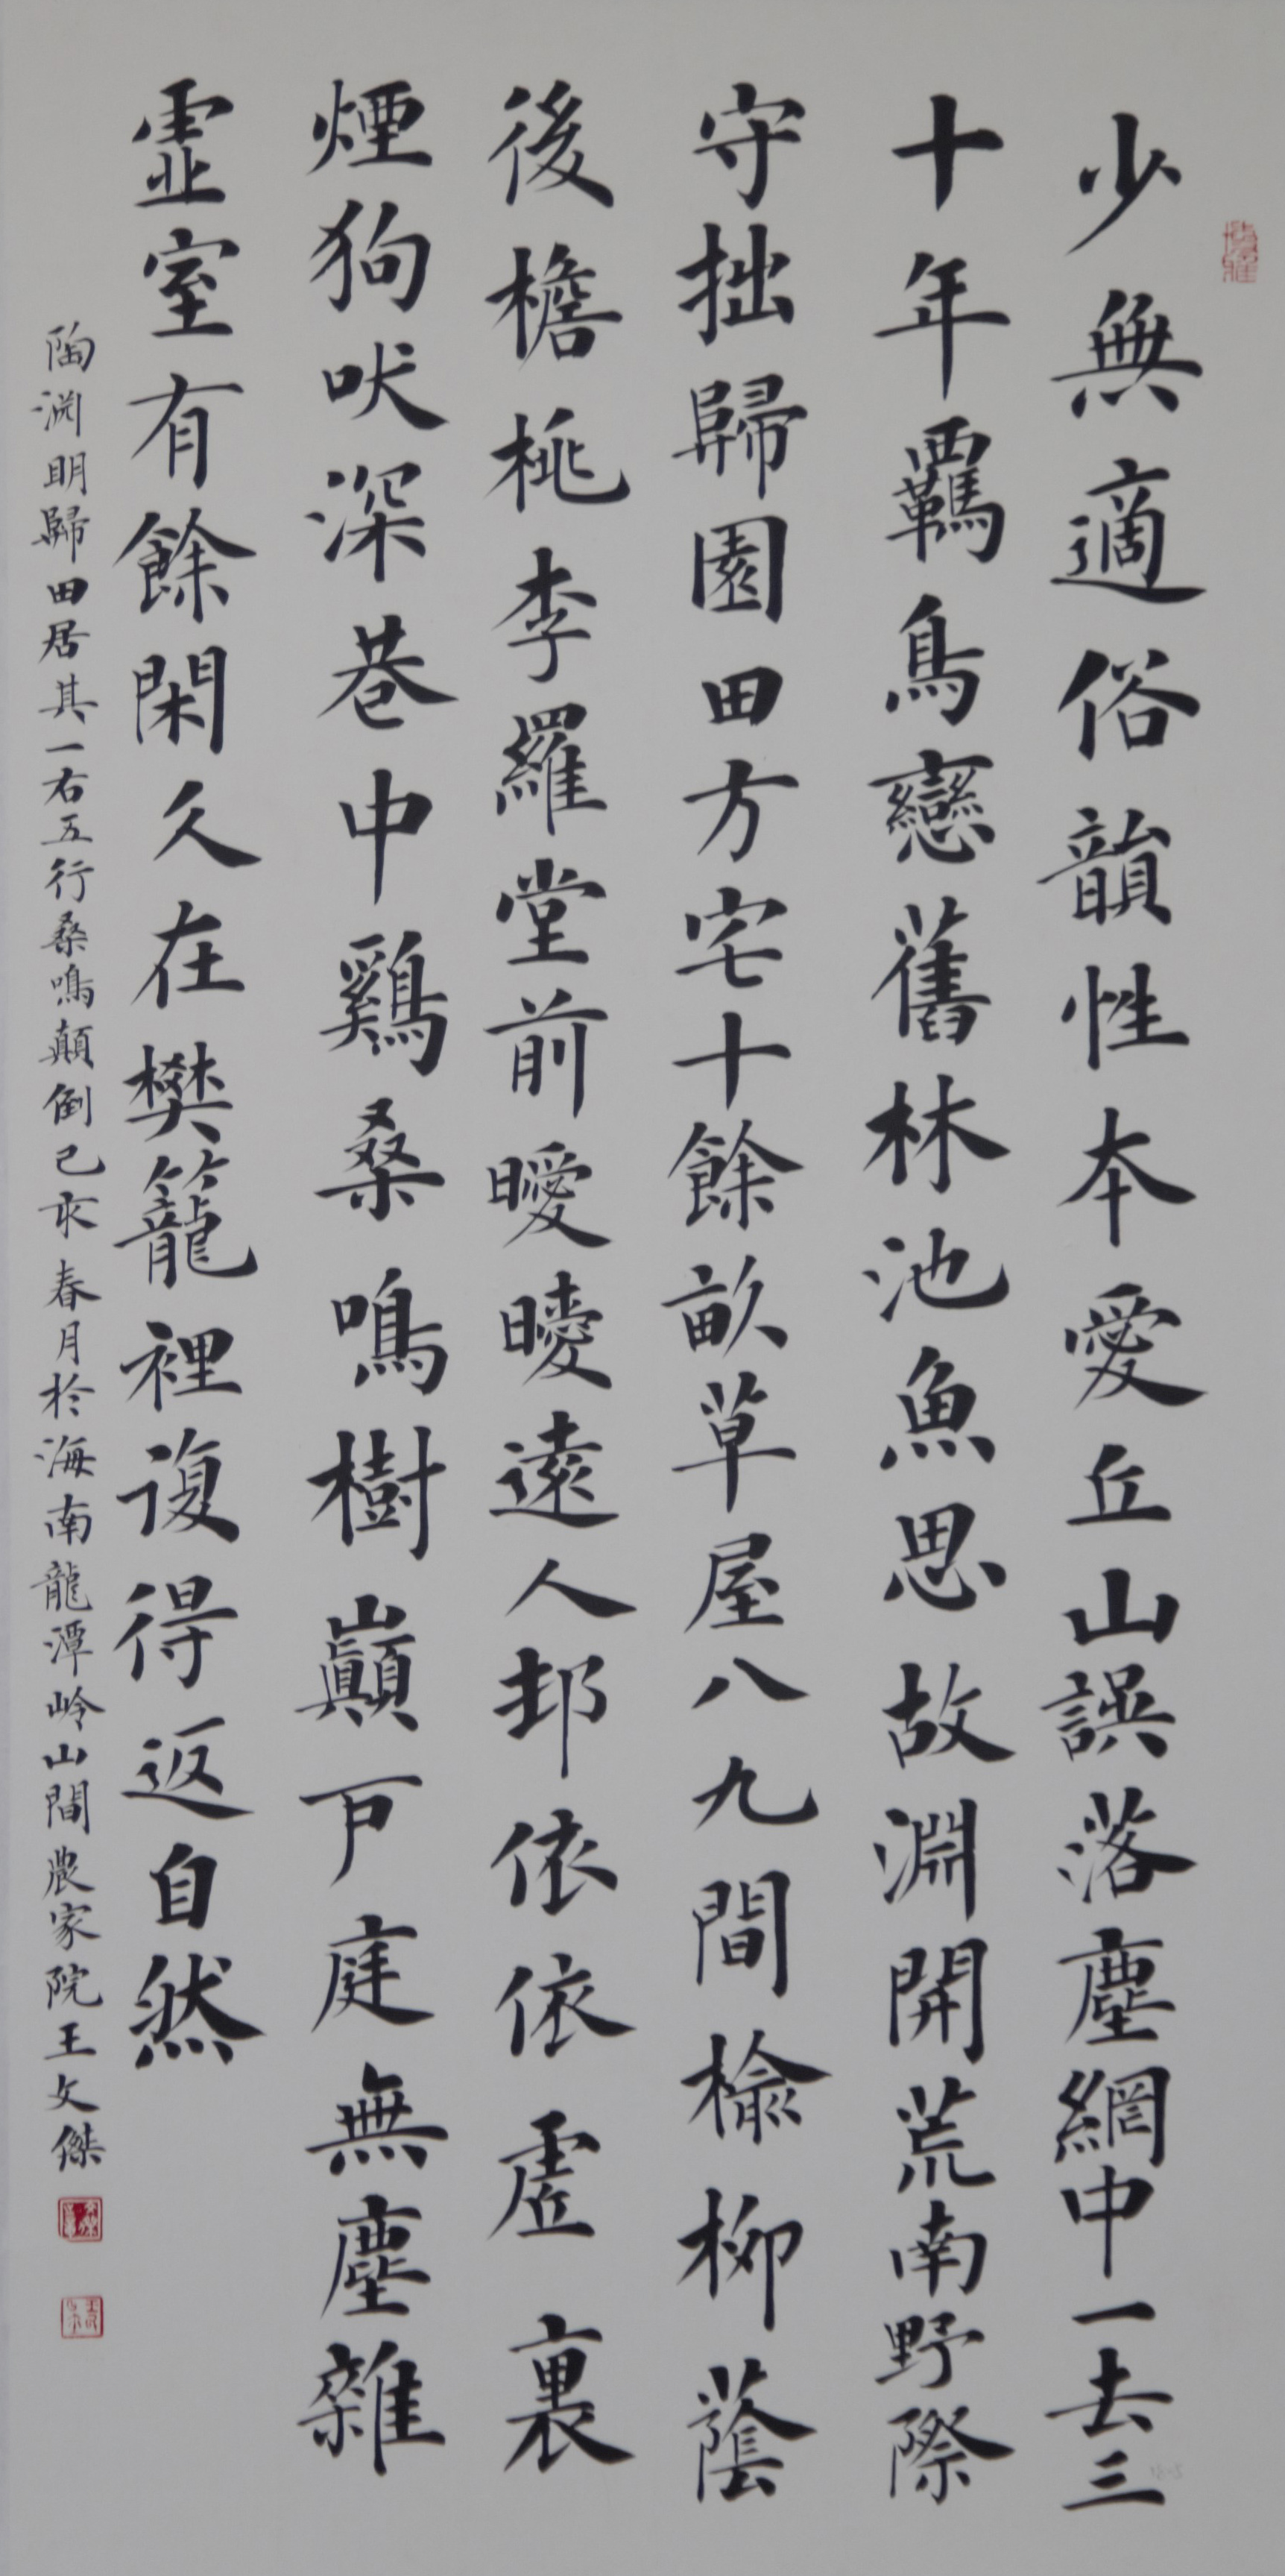 少無適俗韻性本愛丘山誤落塵網中一去三
十年羈鳥戀舊林池魚思故淵開荒南野際
守拙歸園田方宅十餘畝草屋八九間榆柳蔭
後檐桃李羅堂前曖曖遠人邨依依虛裏
煙狗吠深巷中鷄桑鳴樹巔戶庭無塵雜
虛室有餘閑久在樊籠裡復得返自然
陶渊明歸田居其一右五行桑鳴顛倒己亥春月於海南龍潭岭山間農家院王文傑